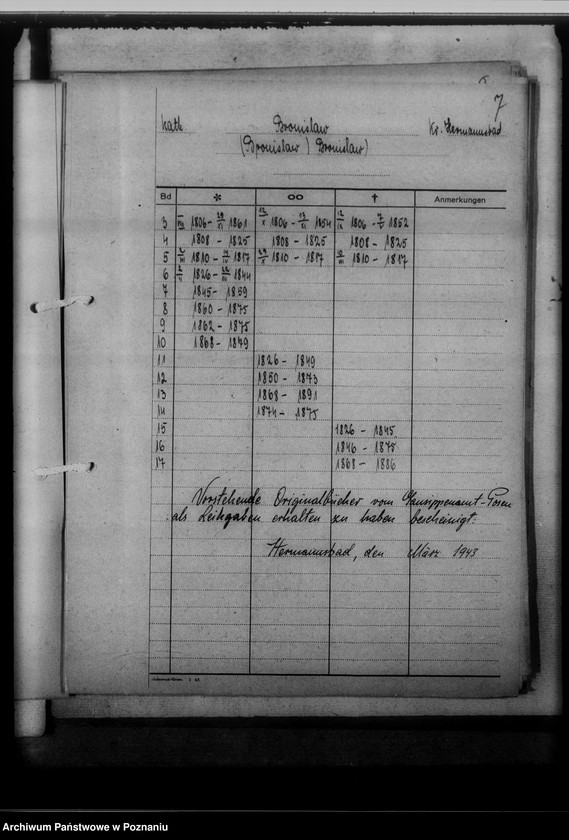 7
kath Bronislaw Kr. Hermannsbad
(Bronislaw) Bronislaw)
Bd * oo † Anmerkungen
3 1806 - 1861 1806 - 1854 1806 - 1852
4 1808 - 1825 1808 - 1825 1808 - 1825
5 1810 - 1817 1810 - 1817 1810 - 1817
6 1826 - 1844
7 1845 - 1859
8 1860 - 1875
9 1862 - 1875
10 1868 - 1879
11 1826 - 1849
12 1850 - 1873
13 1868 - 1891
14 1874 - 1875
15 1826 - 1845
16 1846 - 1875
17 1868 - 1886
Vorstehende Originalbücher vom Gausippenamt-Posen
als Leihgaben erhalten zu haben bescheinigt.
Hermannsbad, den März 1943
Archiwum Państwowe w Poznaniu